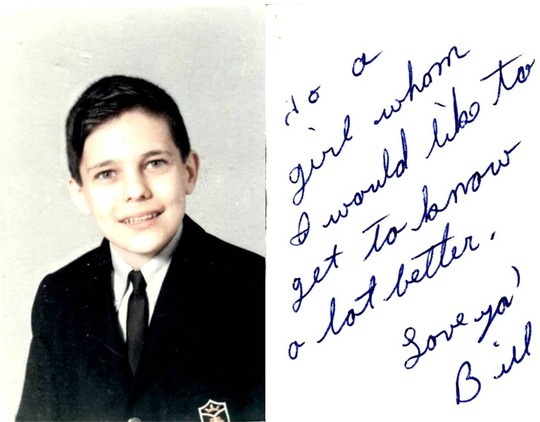 to a
girl whom
I would like to
get to know
a lot better.
Love ya'
Bill